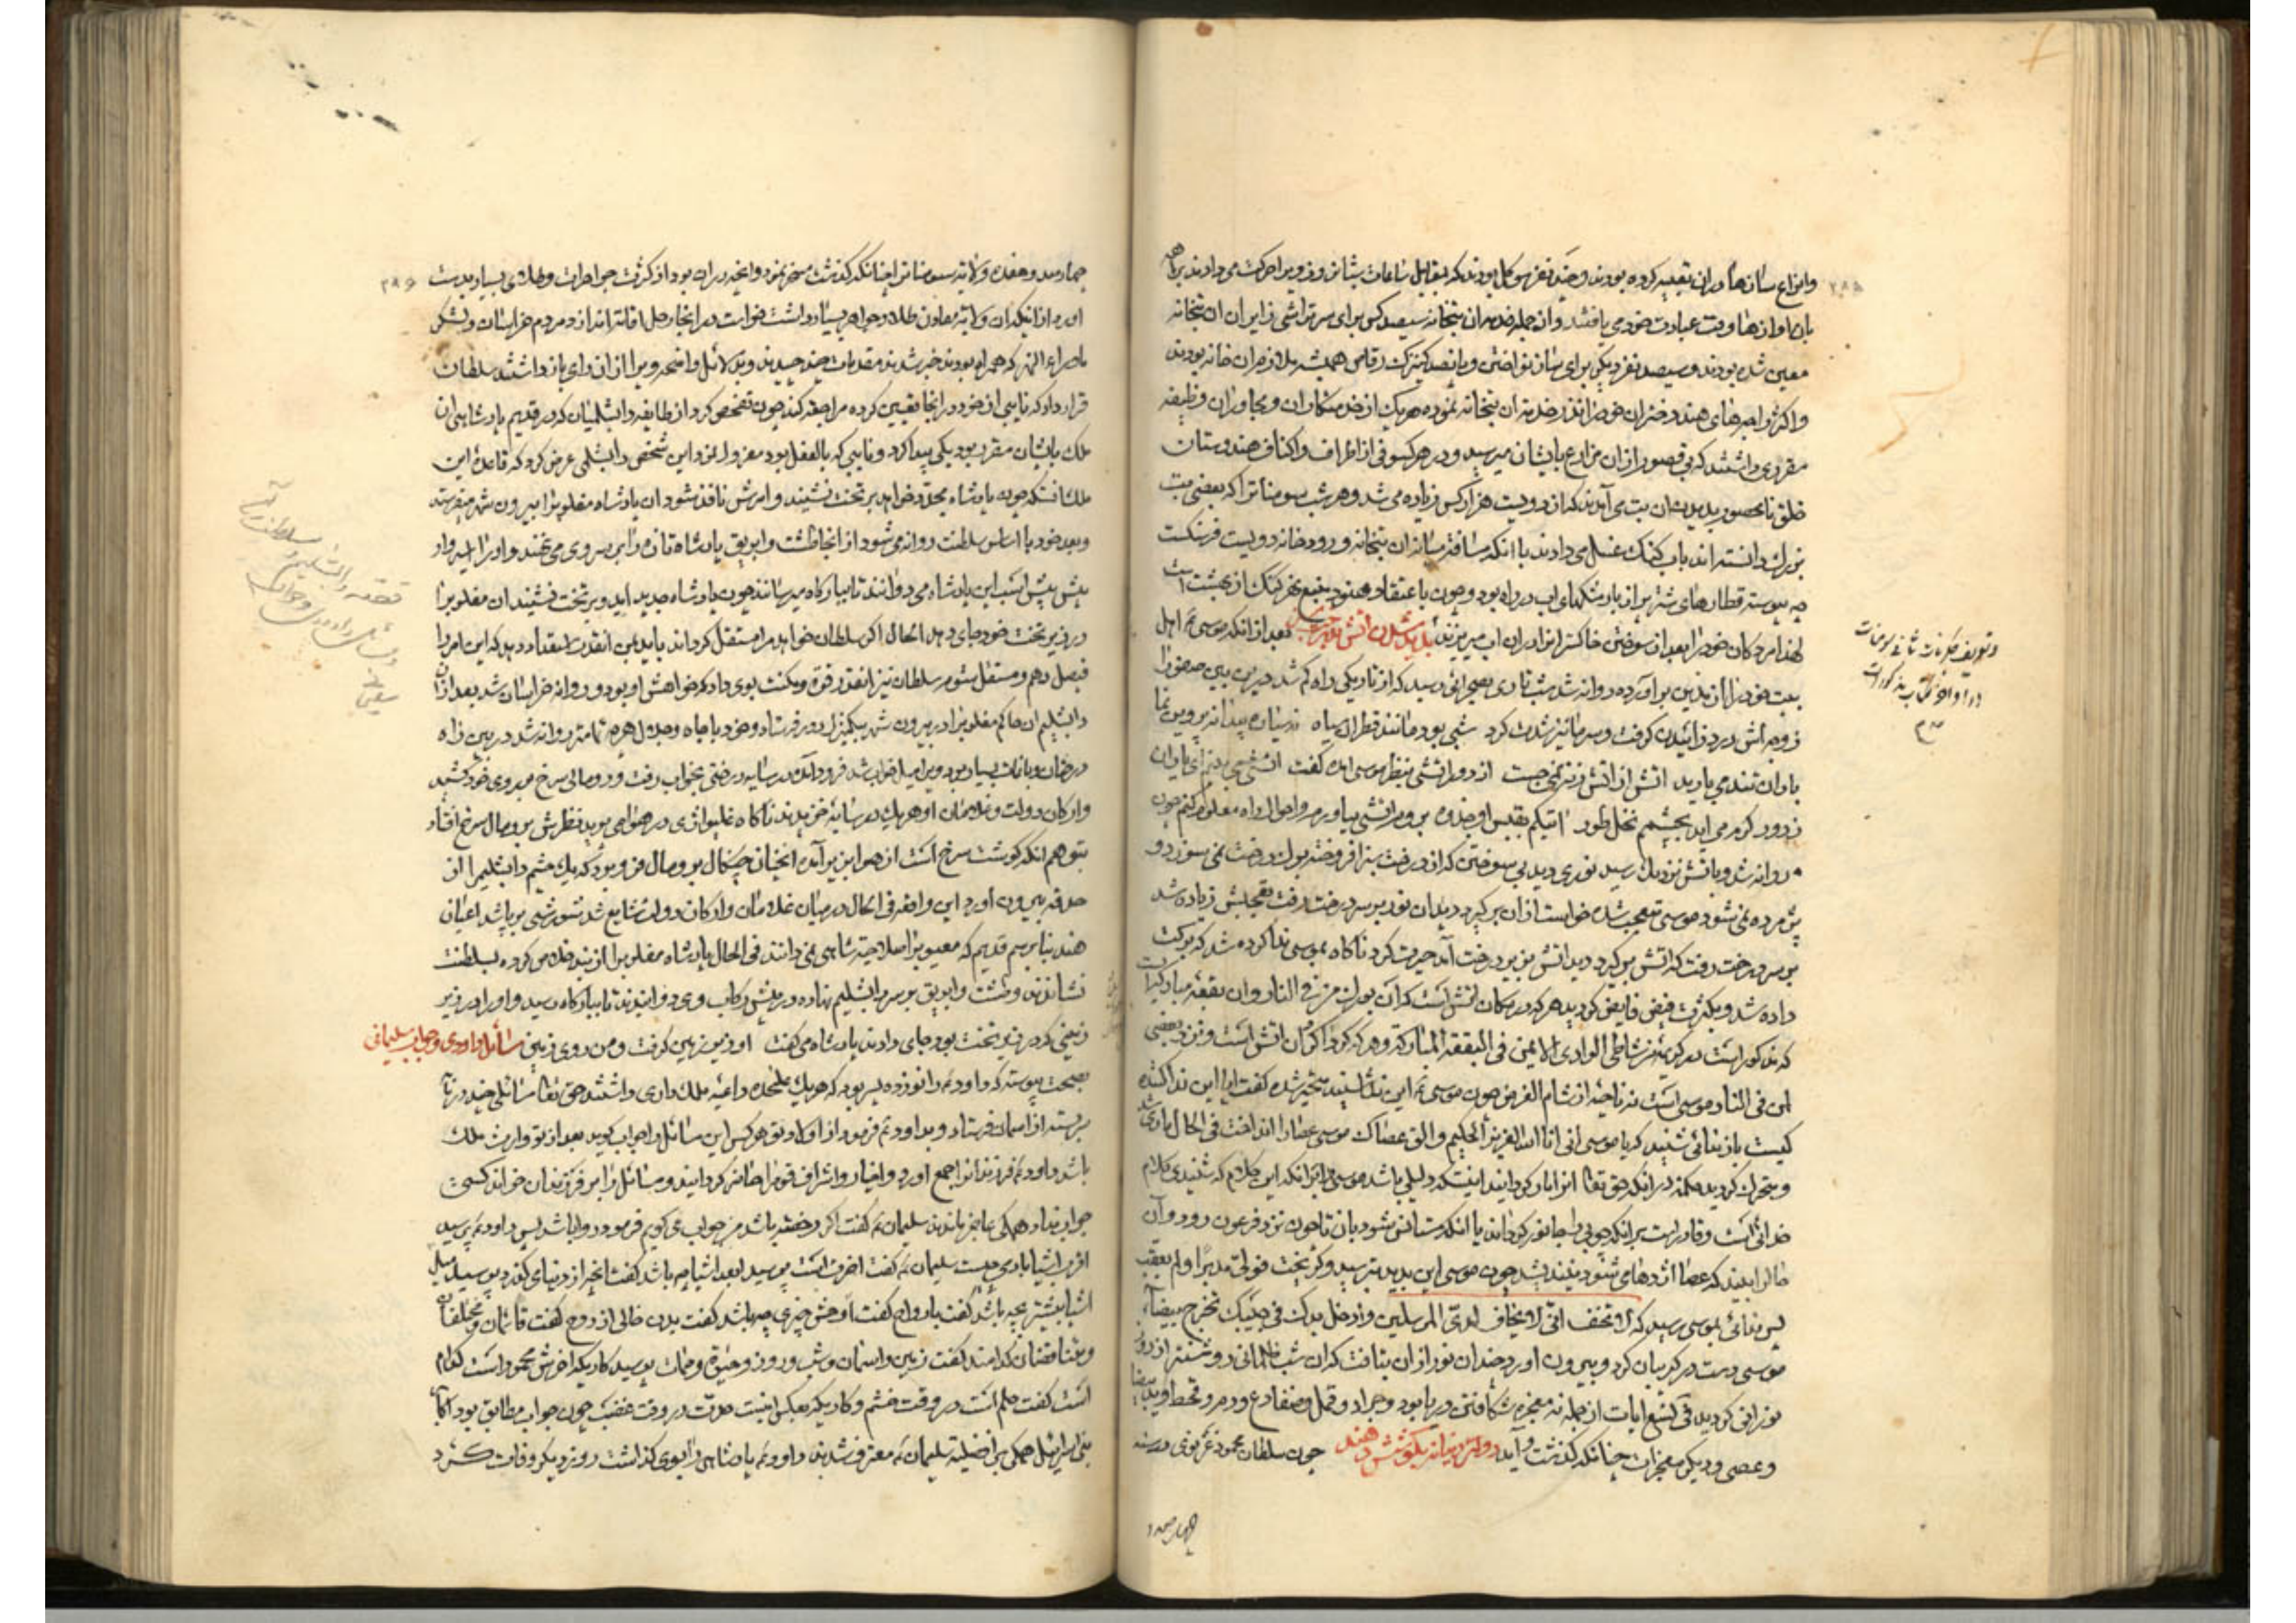 وانواع سازها دران تعبیه کرده بودند و چند نفر موکل بودند که بمقابل ساعات شبانروز ویرا حرکت می دادند براهمه
بان اوازها وقت عبادت خود می یافتند و از جمله خدمه ان بتخانه سیصد کس برای سر تراشی زایران ان بتخانه
معین شده بودند و سیصد نفر دیگر برای ساز نواختن و پانصد کنیزک رقاص همیشه ملازم ان خانه بودند
و اکثر راجهای هند دختران خود را نذر خدمت ان بتخانه نموده هر یک از خدمتکاران و مجاوران وظیفه
مقرری داشتند که بی قصور ازان مزارع بایشان میرسید و در هر کسوفی از اطراف و اکناف هندوستان
خلق نامحصور بدیدن ان بت می آمدند که از دویست هزار کس زیاده می شد و هر شب سومنات را که بعضی بت
بزرک دانسته اند باب کنک غسل می دادند با انکه مسافت میان ان بتخانه و رودخانه دویست فرسنکست
چه پیوسته قطارهای شتر پر از بار مشکهای اب در راه بود و چون باعتقاد هنود منبع نهر کنک از بهشت است
لهذا مردکان خود را بعد از سوختن خاکستر انرا دران اب میریزند بعد از انکه موسی ع اهل
بیت خود را از مدین بر آورده روانه شد شب تاری بصحرائی رسید که از تاریکی راه کم شد درین بین صفورا
زوجه اش درد زائیدن کرفت و سرما نیز شدت کرد شبی بود مانند قطران سیاه نه ستاره پیدا نه پروین نما
باران تندی بارید اتش از اتش زنه نمی جست از دور اتشی بنظر موسی امد کفت اتشی می بینم ای یاران
ز دور کرم می اید بچشم نخل طور اتیکم بقبس او جذوه بروم اتشی بیاورم و احوال راه معلوم کنم چون
روانه شد و باتش نزدیک رسید نوری دید بی سوختن که از درخت سبز افروخته بود درخت نمی سوزد و
پژمرده نمی شود موسی متعجب شده خواست ازان بر کیرد دید ان نور بر سر درخت رفت تعجبش زیاده شد
بر سر درخت رفت که اتش بر کیرد دید اتش بزیر درخت آمد حیرت کرد ناکاه بموسی ندا کرده شد که برکت
داده شد و بکثرت فیض فایض کردید هر که در مکان اتش است که ان بورک من فی النار و ان بقعه مبارکست
که مذکور است در کریمه من شاطئ الوادی الایمن فی البقعه المبارکة و هر که کرداکرد ان اتش است و نزد بعضی
من فی النار موسی است نه ناحیه از شام الغرض چون موسی ع این ندا شنید متحیر شده کفت ایا این نداکننده
کیست باز ندائی شنید که یا موسی انی انا الله العزیز الحکیم و الق عصاک موسی عصا را انداخت فی الحال ماری شد
و متحرک کردید حکمت در انکه حق تعالی انرا مار کردانید اینست که دلیلی باشد موسی را برانکه این کلام که شنیدی کلام
خدائی است و قادر است برانکه چوبی را جانور کرداند یا انکه مستانس شود بان تا چون نزد فرعون رود و آن
حال را ببیند که عصا اژدها می شود نترسد چون موسی این بدید بترسید و کریخت فولی مدبرا و لم یعقب
پس ندائی بموسی رسید که لا تخف انی لا یخاف لدی المرسلین و ادخل یدک فی جیبک تخرج بیضاء
موسی دست در کریبان کرد و بیرون اورد چندان نور ازان بتافت که ان شب ظلمانی روشنتر از روز
نورانی کردید فی تسع ایات از جمله نه معجزه شکافتن دریا بود و جراد و قمل و ضفادع و دم و قحط و ید بیضا
و عصی و دیکر معجزات چنانکه کذشت و آید چون سلطان محمود غزنوی در سنه
چهارصد و
و تعریف حکومت شانی سومنات
در اواخر کتاب مذکور است
۲۸۵
چهارصد و هفده ولایت سومنات را چنانکه کذشت مسخر نمود و انچه دران بود از کثرت جواهرات و طلای بسیار بدست
اورد از انکه ان ولایت معادن طلا و جواهر بسیار داشت خواست در انجا رحل اقامت اندازد مردم خراسان و لشکر
ماوراء النهر که همراه بودند خبر شدند مقدمات چند چیدند و بدلائل واضحه ویرا از ان رای باز داشتند سلطان
قرار داد که نایبی از خود در انجا تعیین کرده مراجعت کند چون تفحص کرد از طایفه دابشلیمان که در قدیم پادشاهی ان
ملک بایشان مقرر بود یکی پیدا کرد و نایبی که بالفعل بود معزول نمود این شخص دابشلمی عرض کرد که قاعده این
ملک انستکه چون پادشاه مجدد خواهد بر تخت نشیند و امرش نافذ شود ان پادشاه مغلوب را بیرون شهر میفرستد
و بعد خود با اساس سلطنت روانه می شود از انجا طشت و ابریق پادشاه تازه را بر سر وی می نهند و او را اسیر وار
پیش پیش اسب این پادشاه می دوانند تا ببارکاه میرسانند چون پادشاه جدید اید و بر تخت نشیند ان مغلوب را
در زیر تخت خود جای دهد الحال اکر سلطان خواهد مرا مستقل کرداند باید بمن انقدر استعداد دهد که این امر را
فیصل دهم و مستقل شوم سلطان نیز انقدر قوت و مکنت بوی داد که خواهش او بود و روانه خراسان شد بعد ازان
دابشلیم ان حاکم مغلوب را در بیرون شهر بیکمنزل دور فرستاد و خود با جاه و جلال هر چه تمامتر روانه شد در بین راه
درختان و باغات بسیار بود ویرا میل خواب شد فرود آمده در سایه درختی بخواب رفت و رومالی سرخ بر روی خود کشید
و ارکان دولت و غلامان او هر یک در سایه خزیدند ناکاه غلیواژی در هوا می پرید نظرش برومال سرخ افتاد
بتوهم انکه کوشت سرخ است از هوا بزیر آمده انچنان چنکال برومال فرو برد که یک چشم دابشلیم را از
حدقه بیرون اورد این واقعه فی الحال در میان غلامان و ارکان دولت شایع شد شورشی بر پا شد اعیان
هند بنا برسم قدیم که معیوب را صلاحیت شاهی نمی دانند فی الحال پادشاه مغلوب را از بند خلاص کرده بسلطنت
نشاندند و طشت و ابریق بر سر دابشلیم نهاده در پیش رکاب وی دوانیدند تا ببارکاه رسید و او را در زیر
زمینی که در زیر تخت بود جای دادند پادشاه می کفت او زیر زمین کرفت و من روی زمین مسائل داودی و جواب سلیمانی
بصحت پیوسته که داود ع را نوزده پسر بود که هر یک علیحده داعیه ملک داری داشتند حق تعالی مسائلی چند
سربسته از اسمان فرستاد و بداود ع فرمود از اولاد تو هر کس این مسائل را جواب کوید بعد از تو وارث ملک
باشد داود ع فرزندانرا جمع اورد و احبار و اشراف قوم را حاضر کردانید و مسائل را بر فرزندان خواند کسی
جواب نداد همکی عاجز ماندند سلیمان ع کفت اکر رخصت باشد من جواب می کویم فرمود روا باشد پس داود ع پرسید
اقرب اشیا بادمی چیست سلیمان ع کفت اخرت است پرسید ابعد اشیا چه باشد کفت انچه از دنیا می کذرد پرسید میل
اشیا بیشتر بچه باشد کفت بارواح کفت اوحش چیزی چه باشد کفت بدن خالی از روح کفت قائمان و مختلفان
و متناقضان کدامند کفت زمین و اسمان و شب و روز و حیوة و ممات پرسید کاریکه اخرش محمود است کدام
است کفت حلم است در وقت خشم و کاریکه بعکس اینست حدت در وقت غضب چون جواب مطابق بود اکابر
بنی اسرائیل همکی بر افضلیت سلیمان ع معترف شدند داود ع پادشاهی را بوی کذاشت روز دیکر وفات کرد
۲۸۶